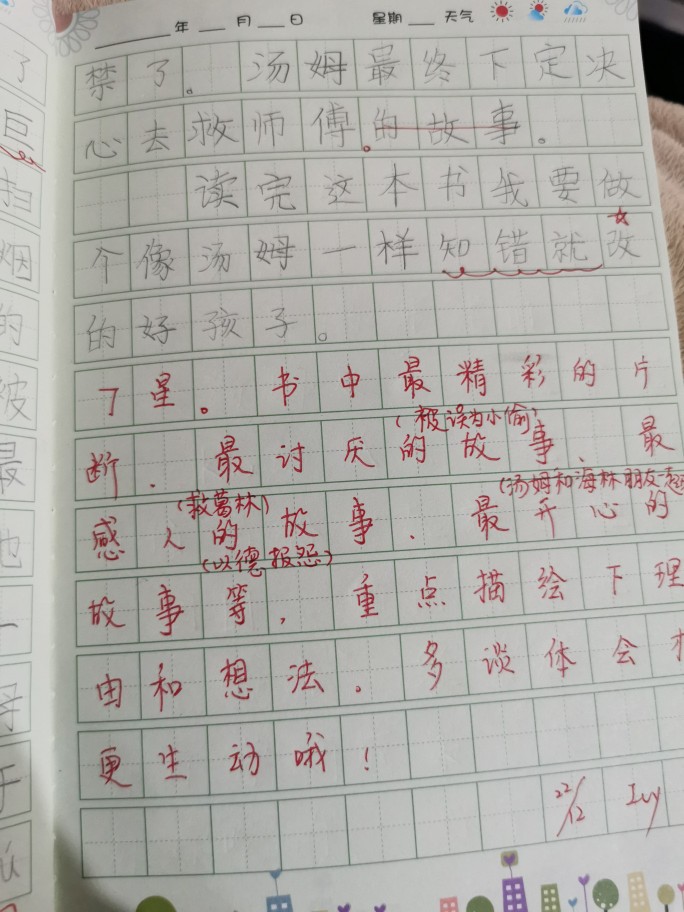 年 月 日 星期 天气
禁了。汤姆最终下定决
心去救师傅。的故事。
读完这本书我要做
个像汤姆一样知错就改
的好孩子。
丁星。书中最精彩的片
(被误为小偷)
断.最讨厌的故事、最
(救葛林) (汤姆和海林朋友
感人的故事、最开心的
(以德报怨)
故事等,重点描绘下理
由和想法。多谈体会才
更生动哦!
22/12 Ivy
了
巨
扫
烟
的
被
最
也
一
于